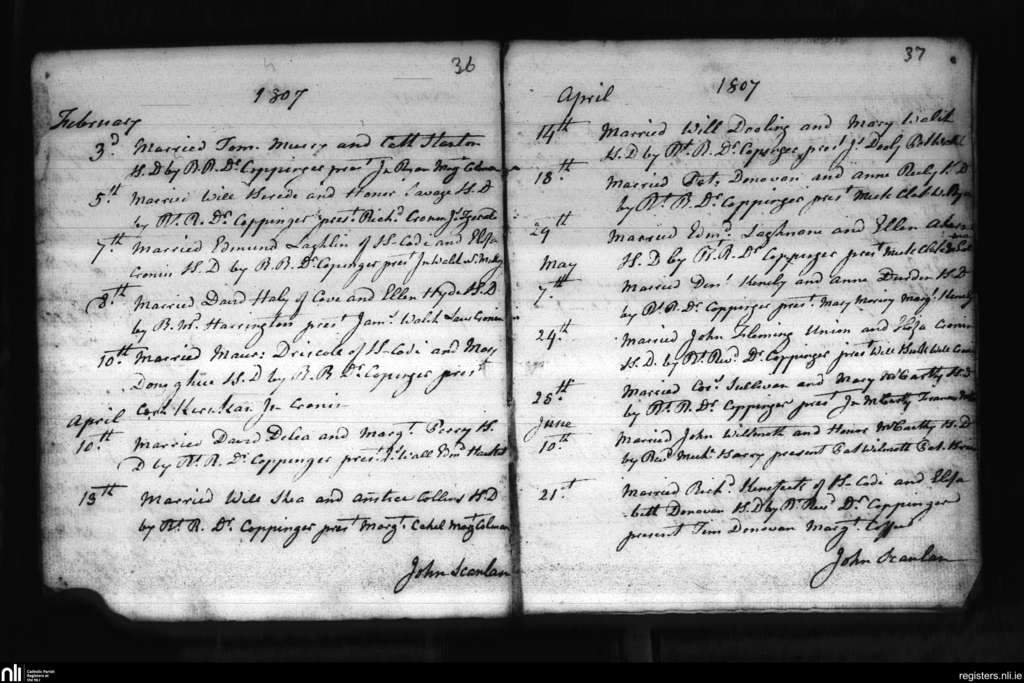 36
1807
February
3d. Married Tom Murry and Cath Stanton
H.D by R.R. Dr. Coppinger prest. Jn Ryan Marg Colman
5th. Married Will and Honor Savage H.D
by Rt. R. Dr. Coppinger prest. Richd. Cronin Js.
7th Married Edmund Laghlin of H-Codi and Elsa
Cronin H.D by R.R. Dr. Copinger prest Jn Walsh
8th Married David Haly of Cove and Ellen Hyde H.D
by R. Wm. Harrington prest. Jams. Walsh Laus Cronin
10th Married Maus: Driscole of H-Codi and Mary
Donoghue H.D by R.R Dr. Copinger prest
Corn. Jn Cronin
April
10th. Married David Delea and Margt. Percy H.
D by Rt. R. Dr. Coppinger prest. Edmd
13th Married Will Shea and Collins H.D
by Rt. R. Dr. Coppinger prest Margt. Cahel Margt Colman
John Scanlan
37
1807
April
14th Married Will Dooling and Mary Walsh
H.D by Rt. R. Dr. Copinger prest Js
18th Married Pat. Donovan and Anne H.D
by Rt. R Dr. Coppinger prest
29th Married Edmd. Laghnane and Ellen
H.D by Rt. R. Dr. Coppinger prest
May
7th. Married Denl. Henely and Anne H.D
by Rt. R Dr. Coppinger prest. Mary Margt. Henely
24th. Married John Fleming Union and Elsa Cronin
H.D. by Rt. Revd. Dr. Coppinger prest Will Will
25th. Married Cors. Sullivan and Mary McCarthy H.D
by Rt. R. Dr. Coppinger prest Jn McCarty
June
10th. Married John Wilmoth and Honor McCarthy H.D
by Revd. Michl. Barry present Cat Wilmote Cat.
21st. Married Richd. of H-Codi and Elsa
beth Donovan H.D by Rt Revd. Dr. Coppinger
present Tim Donovan Margt.
John Scanlan
nli
Catholic Parish
Registers at
the NLI
registers.nli.ie